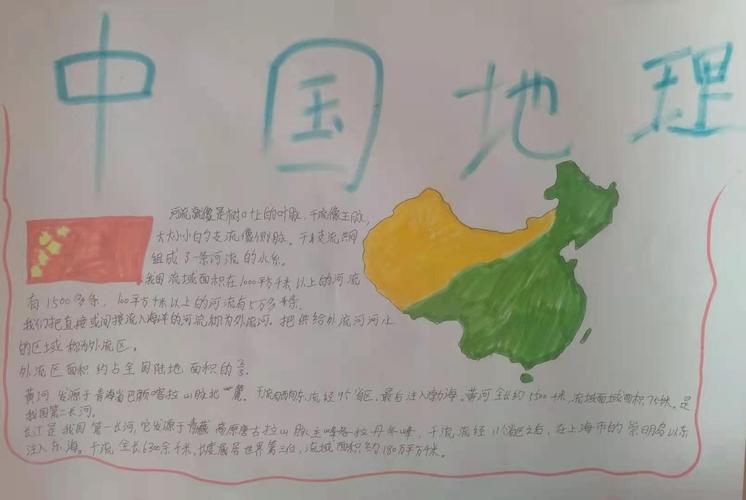 中国地理
河流就像是树叶上的叶脉,干流像主脉,
大大小小的支流像侧脉。干支流共同
组成了一条河流的水系。
我国流域面积在1000平方千米以上的河流
有1500多条,100平方千米以上的河流有5万多条.
我们把直接或间接流入海洋的河流称为外流河。把供给外流河河水
的区域称为外流区。
外流区面积约占全国陆地面积的2/3.
黄河发源于青海省巴颜喀拉山脉北麓。流经9个省区,最后注入渤海。黄河全长约5500千米,流域面积75万,是
我国第二长河。
长江是我国第一长河,它发源于青藏高原唐古拉山脉主峰格拉丹冬峰,干流流经11个省区之后,在上海市的崇明岛以东
注入东海。干流全长6300余千米,长度居世界第三位,流域面积约180万平方千米。